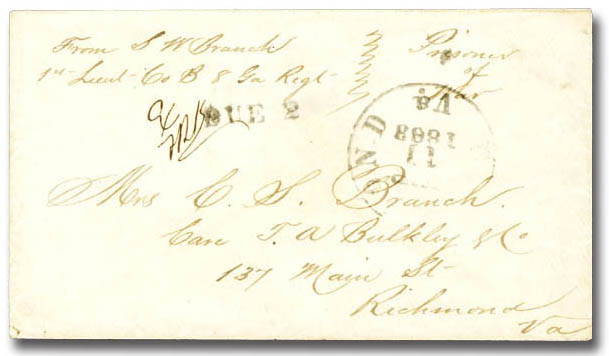 From S W Branch Prisoner
1st Lieut Co B 8 Ga Regt of
War
DUE 2
OND
Va.
11
1863
Mrs C. S. Branch.
Care T. A Bulkley & Co
137 Main St
Richmond
Va